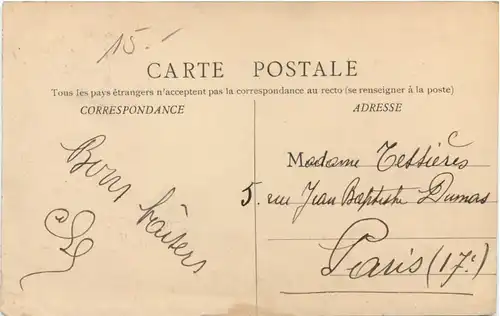 15.-
CARTE POSTALE
Tous les pays étrangers n'acceptent pas la correspondance au recto (se renseigner à la poste)
CORRESPONDANCE
ADRESSE
Bons
baisers
Madame Tessières
5. rue Jean Baptiste Dumas
Paris (17e)